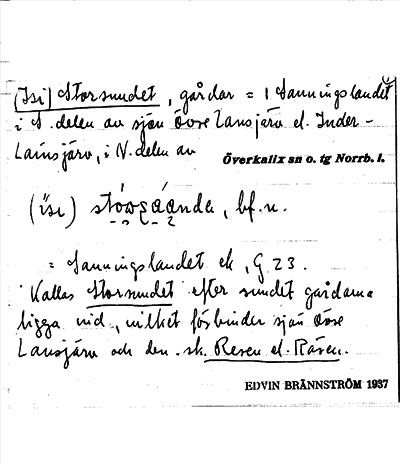 (Isi) Storsundet, gårdar = 1 Sanningslandet
i S. delen av sjön Övre Lansjärv el. Inder-
Lainsjärv, i N. delen av
Överkalix sn o. tg Norrb. l.
(ìsı) stówsáanda, bf. n.
= Sanningslandet ek, G 23.
Kallas Storsundet efter sundet gårdarna
ligga vid, vilket förbinder sjön Övre
Lansjärv och den s.k. Resen el. Räsen.
EDVIN BRÄNNSTRÖM 1937